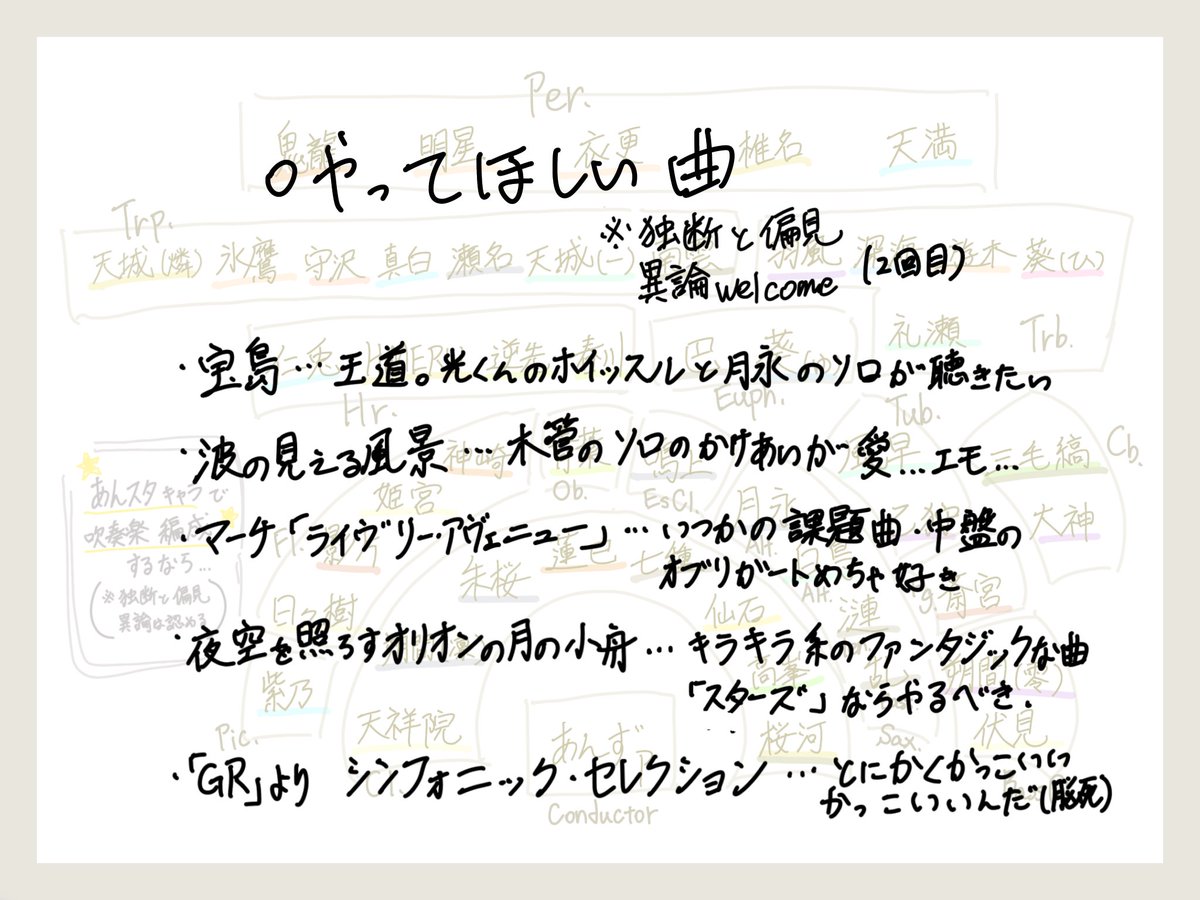 Per.
鬼龍 明星 衣更 椎名 天満
○やってほしい曲
Trp.
※独断と偏見
異論welcome (2回目)
天城(燐) 氷鷹 守沢 真白 瀬名 天城(一) 深海 葵(ひ)
礼瀬 Trb.
・宝島…王道。光くんのホイッスルと月永のソロが聴きたい
Hr. Euph. Tub.
・波の見える風景…木管のソロのかけあいが愛…エモ…
神崎 三毛縞 Cb.
姫宮 Ob. EsCl. 月永 大神
あんスタキャラで
吹奏楽編成
するなら…
(※独断と偏見
異論は認める)
・マーチ「ライヴリー・アヴェニュー」…いつかの課題曲・中盤の
オブリガートめちゃ好き
朱桜 蓮巳 七種
日々樹 仙石 漣 斎宮
・夜空を照らすオリオンの月の小舟…キラキラ系のファンタジックな曲
「スターズ」ならやるべき.
紫乃 朔間(零)
Pic. 天祥院 あんず 桜河 Sax. 伏見
・「GR」より シンフォニック・セレクション…とにかくかっこいい
かっこいいんだ(脳死)
Conductor